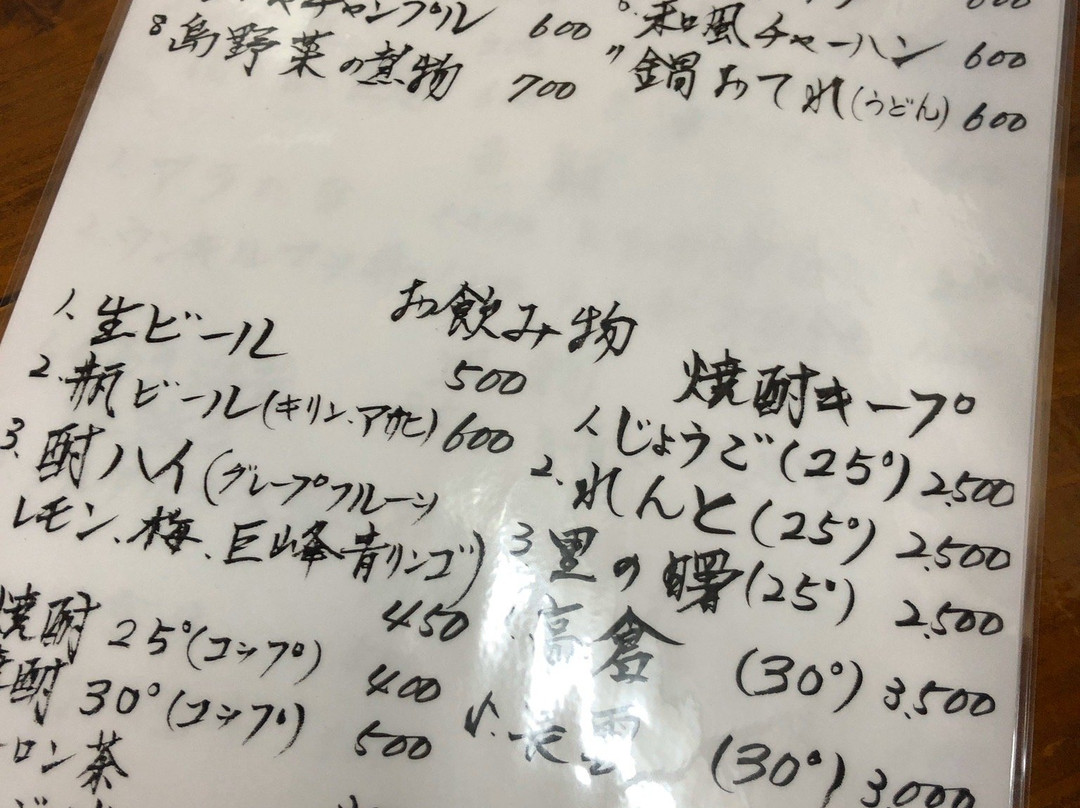 チャンプル 600
8 島野菜の煮物 700
和風チャーハン 600
鍋おてれ(うどん) 600
お飲み物
1、生ビール 500
2、瓶ビール(キリン、アサヒ) 600
3、酎ハイ(グレープフルーツ
レモン、梅、巨峰、青リンゴ) 450
焼酎 25°(コップ) 400
酎 30°(コップ) 500
ロン茶
焼酎キープ
1、じょうご(25°) 2,500
2、れんと(25°) 2,500
3、里の曙(25°) 2,500
高倉 (30°) 3,500
5、長雲 (30°) 3,000